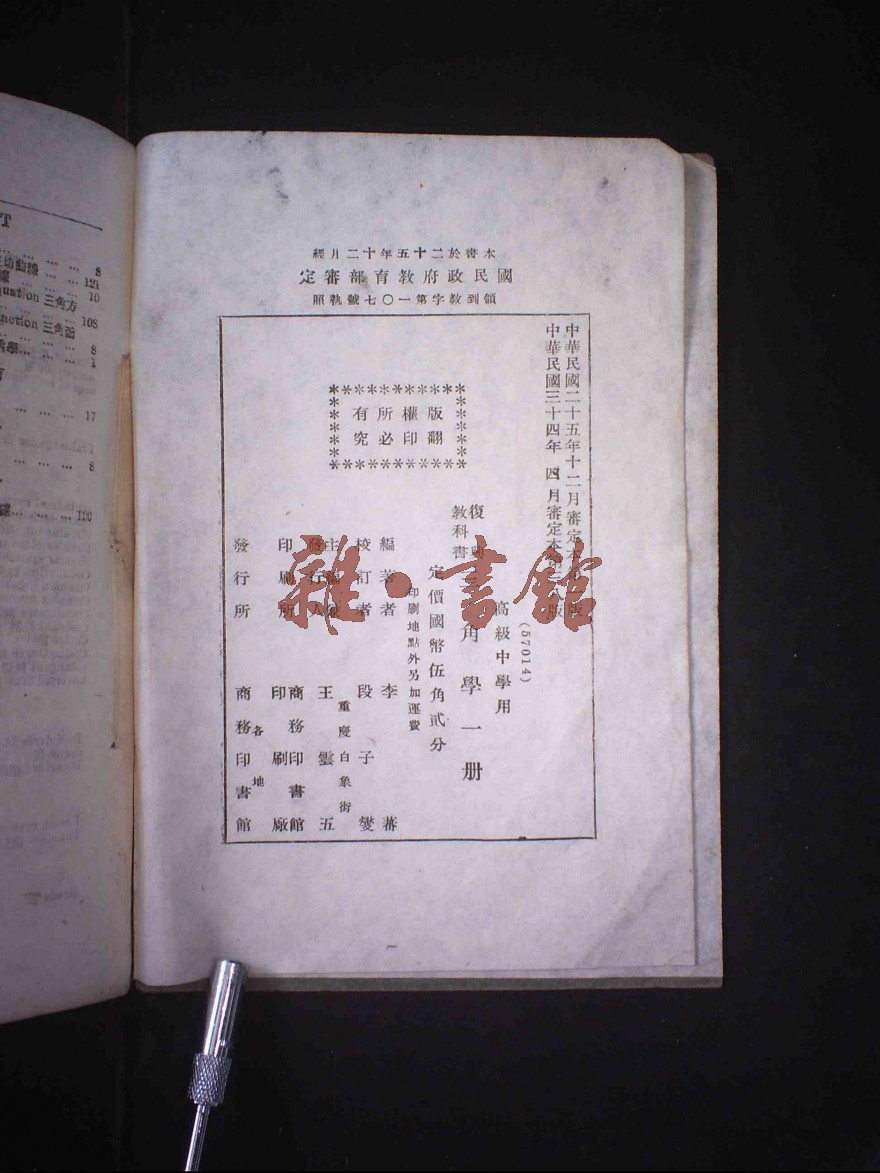 T
… … … 8
… … … 121
… … … 10
quation 三角方
… … … 108
nction 三角函
… … … 8
… … 1
… … … 17
… … … 8
… … … 120
本書於二十五年十二月經
國民政府教育部審定
領到教字第一〇七號執照
中華民國二十五年十二月審定本
版
中華民國三十四年四月審定本第
版
(57014)
高級中學用
復
教科書
角學一册
定價國幣伍角貳分
印刷地點外另加運費
版權所有
翻印必究
編著者 李蕃
校訂者 段子燮
重慶白象街
發行人 王雲五
印刷所 商務印書館印刷廠
各地
發行所 商務印書館
雜·書館